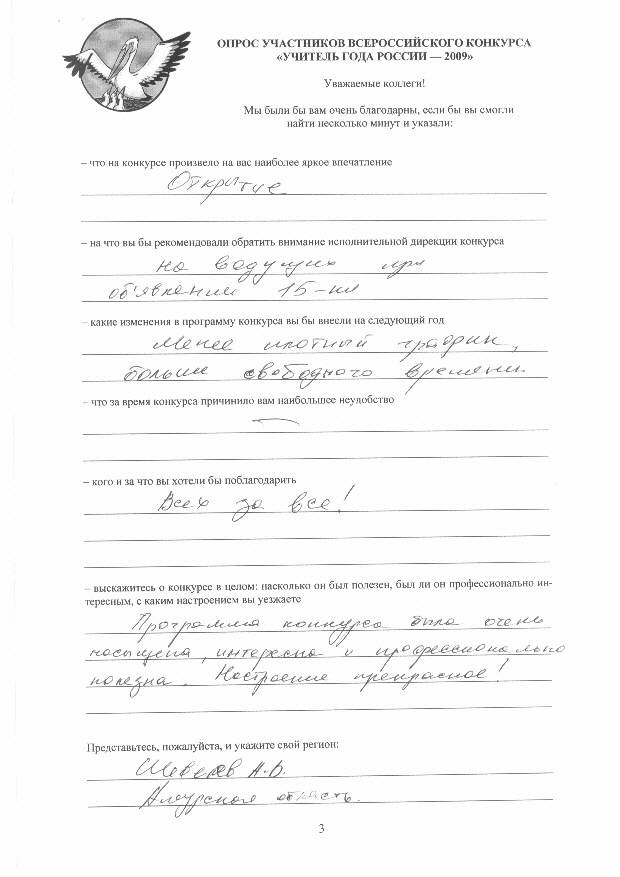 ОПРОС УЧАСТНИКОВ ВСЕРОССИЙСКОГО КОНКУРСА
«УЧИТЕЛЬ ГОДА РОССИИ — 2009»
Уважаемые коллеги!
Мы были бы вам очень благодарны, если бы вы смогли
найти несколько минут и указали:
– что на конкурсе произвело на вас наиболее яркое впечатление
Открытие
– на что вы бы рекомендовали обратить внимание исполнительной дирекции конкурса
на ведущих при
объявлении 15-ки
– какие изменения в программу конкурса вы бы внесли на следующий год
Менее плотный график,
больше свободного времени.
– что за время конкурса причинило вам наибольшее неудобство
—
– кого и за что вы хотели бы поблагодарить
Всех за все!
– выскажитесь о конкурсе в целом: насколько он был полезен, был ли он профессионально ин-
тересным, с каким настроением вы уезжаете
Программа конкурса была очень
насыщена, интересна и профессионально
полезна. Настроение прекрасное!
Представьтесь, пожалуйста, и укажите свой регион:
Шевелев А.В.
Амурская область.
3